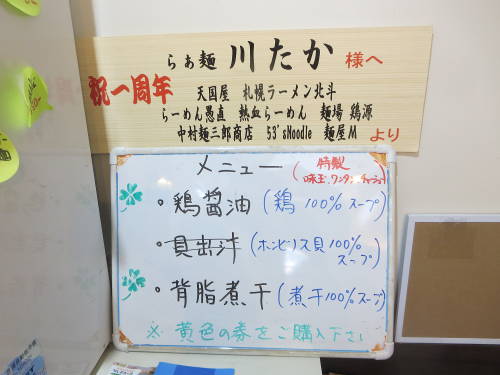 らぁ麺 川たか 様へ
祝一周年
天国屋 札幌ラーメン北斗
らーめん愚直 熱血らーめん 麺場 鶏源
中村麺三郎商店 53'sNoodle 麺屋M より
メニュー (特製
味玉、ワンタン、チャーシュー)
・鶏醤油(鶏 100%スープ)
・貝出汁(ホンビノス貝100%
スープ)
・背脂煮干(煮干100%スープ)
※ 黄色の券をご購入下さい